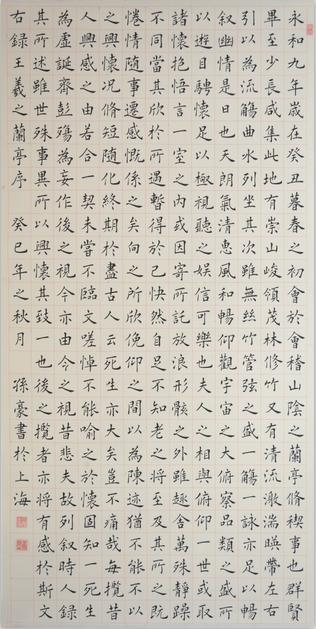 永和九年歲在癸丑暮春之初會於會稽山陰之蘭亭脩禊事也群賢
畢至少長咸集此地有崇山峻嶺茂林修竹又有清流激湍暎帶左右
引以為流觴曲水列坐其次雖無絲竹管弦之盛一觴一詠亦足以暢
叙幽情是日也天朗氣清惠風和暢仰觀宇宙之大俯察品類之盛所
以遊目騁懷足以極視聽之娛信可樂也夫人之相與俯仰一世或取
諸懷抱悟言一室之內或因寄所託放浪形骸之外雖趣舍萬殊靜躁
不同當其欣於所遇暫得於己快然自足不知老之將至及其所之既
惓情隨事遷感慨係之矣向之所欣俛仰之間以為陳迹猶不能不以
之興懷況脩短隨化終期於盡古人云死生亦大矣豈不痛哉每攬昔
人興感之由若合一契未嘗不臨文嗟悼不能喻之於懷固知一死生
為虛誕齊彭殤為妄作後之視今亦由今之視昔悲夫故列叙時人錄
其所述雖世殊事異所以興懷其致一也後之攬者亦將有感於斯文
右錄王羲之蘭亭序 癸巳年之秋月 孫豪書於上海